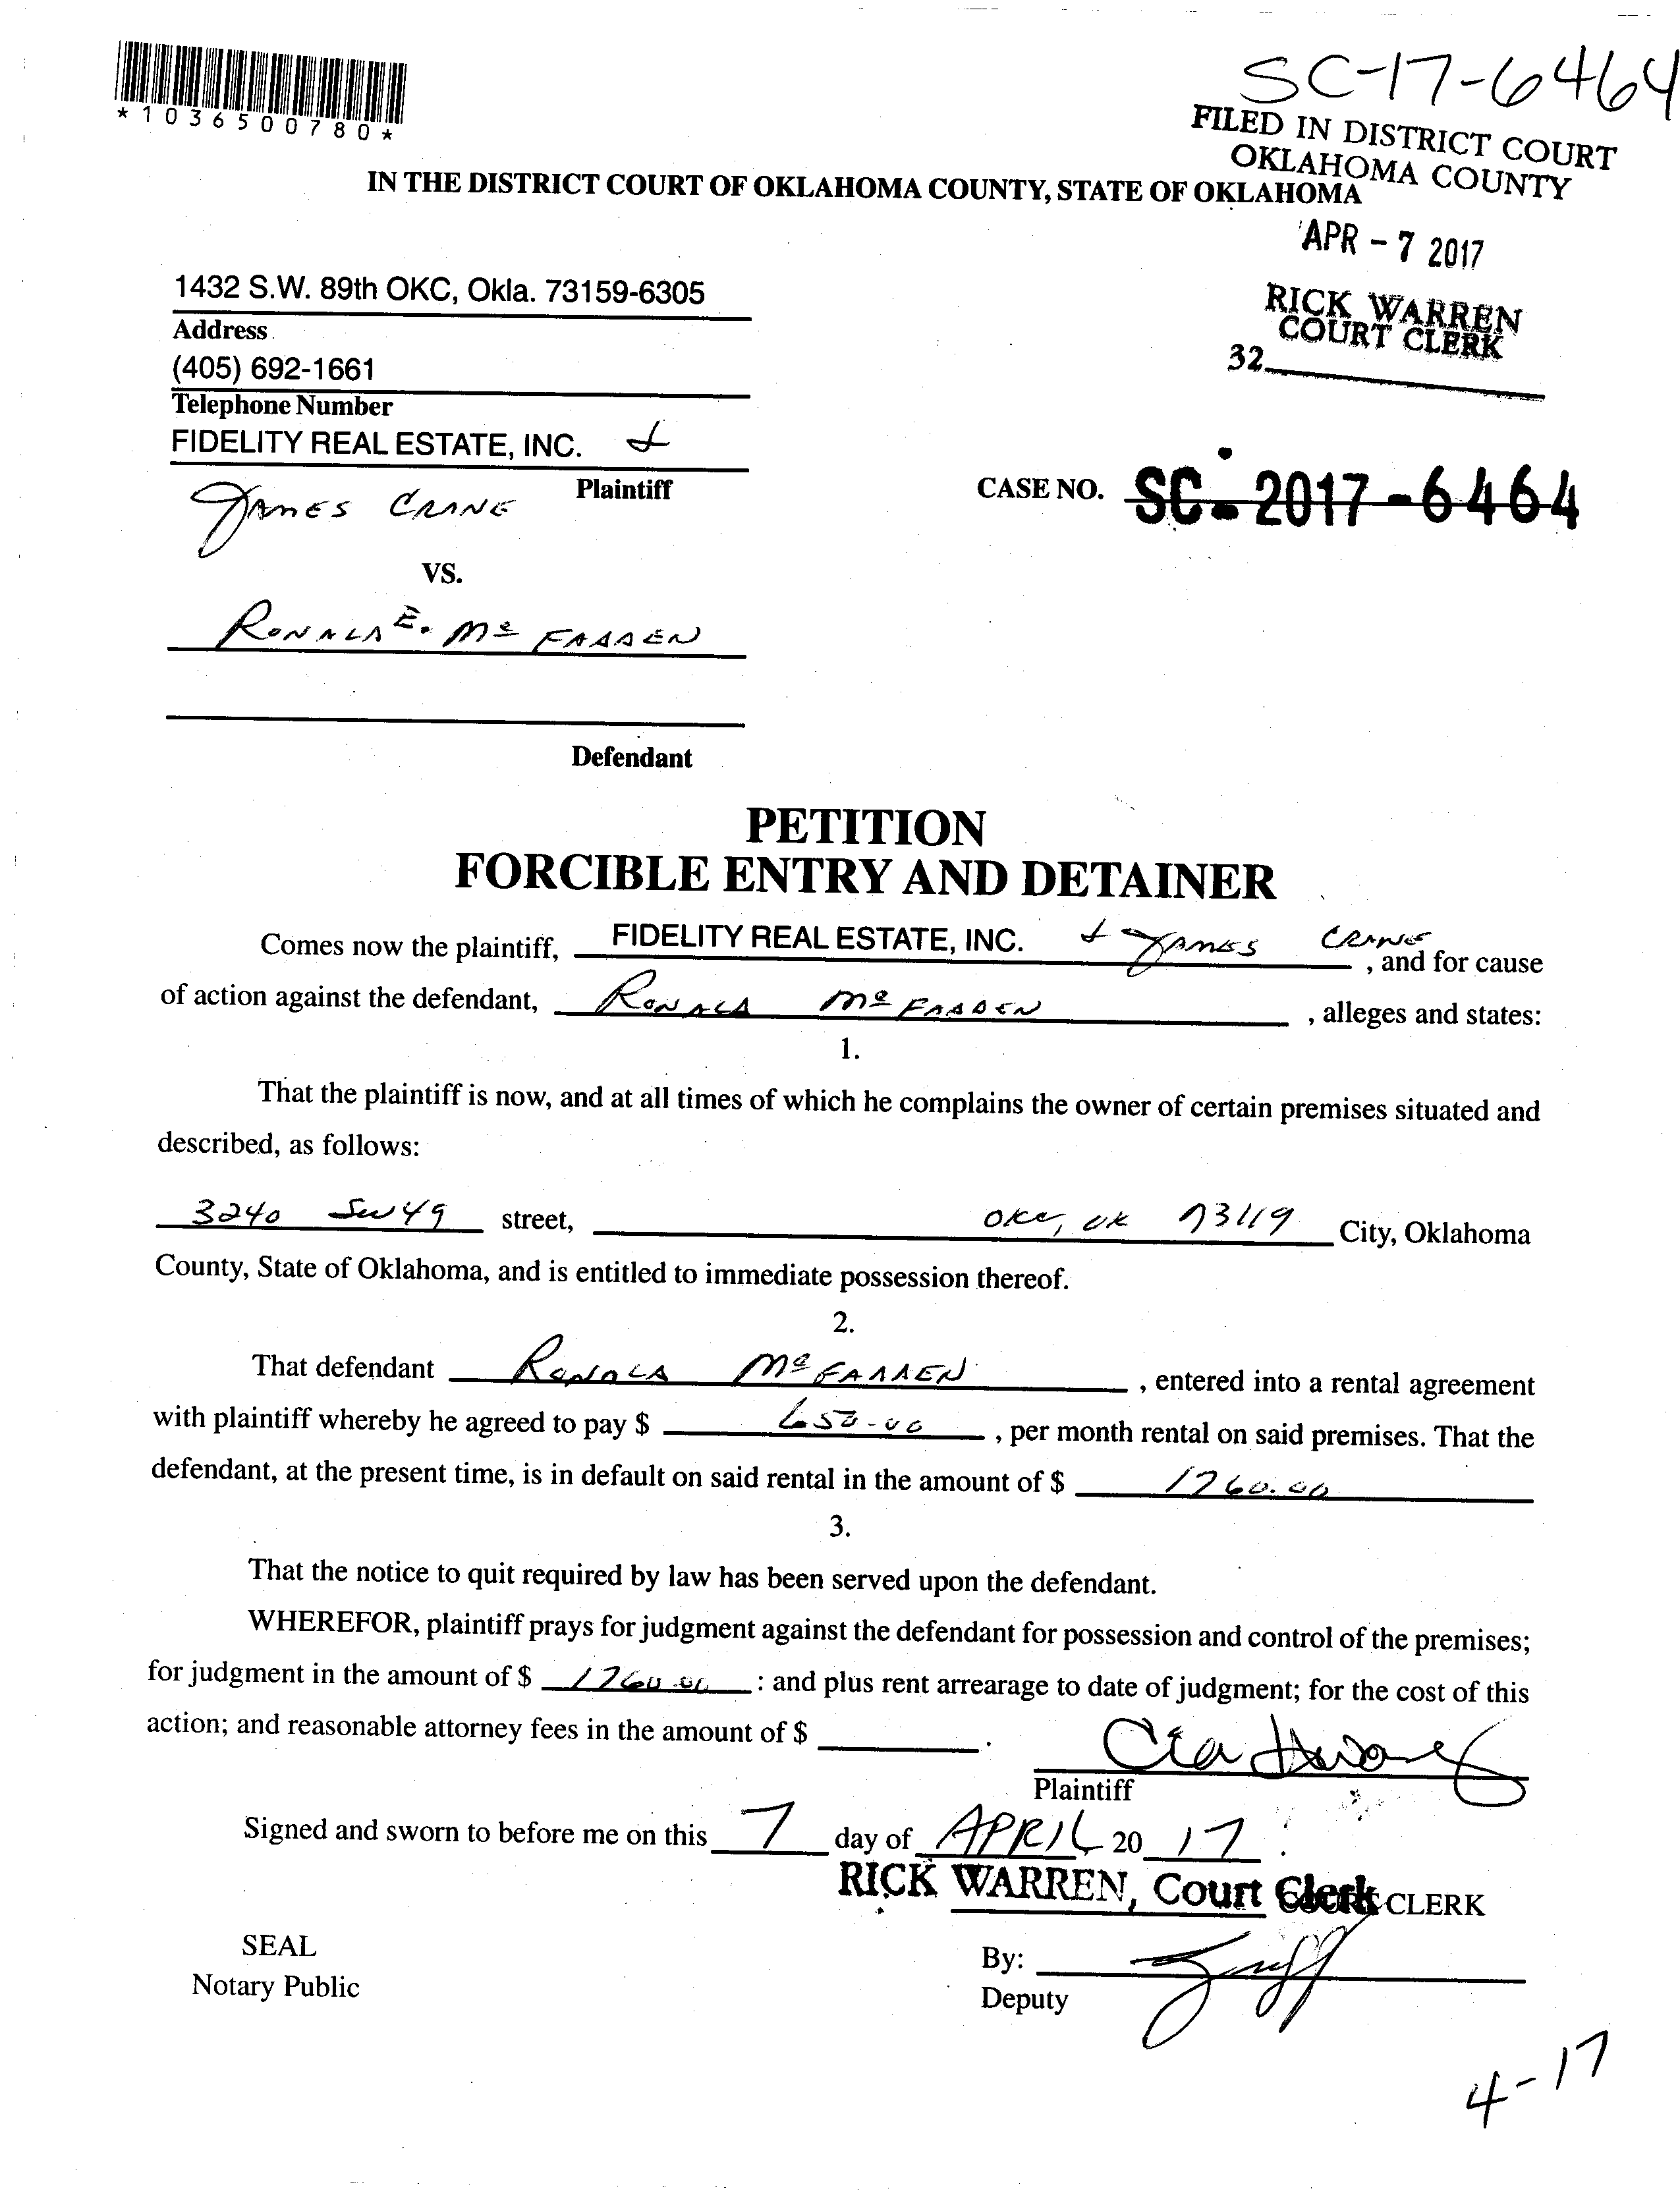 SC-17-6464
*1036500780*
FILED IN DISTRICT COURT
OKLAHOMA COUNTY
IN THE DISTRICT COURT OF OKLAHOMA COUNTY, STATE OF OKLAHOMA
APR - 7 2017
RICK WARREN
COURT CLERK
32
1432 S.W. 89th OKC, Okla. 73159-6305
Address
(405) 692-1661
Telephone Number
FIDELITY REAL ESTATE, INC. &
Plaintiff
JAMES CRANE
CASE NO. SC-2017-6464
VS.
RONALD E. Mc FADDEN
Defendant
PETITION
FORCIBLE ENTRY AND DETAINER
Comes now the plaintiff, FIDELITY REAL ESTATE, INC. & JAMES CRANE, and for cause
of action against the defendant, RONALD Mc FADDEN, alleges and states:
1.
That the plaintiff is now, and at all times of which he complains the owner of certain premises situated and
described, as follows:
3240 SW 49 street, OKC, OK 73119 City, Oklahoma
County, State of Oklahoma, and is entitled to immediate possession thereof.
2.
That defendant RONALD Mc FADDEN, entered into a rental agreement
with plaintiff whereby he agreed to pay $ 650.00, per month rental on said premises. That the
defendant, at the present time, is in default on said rental in the amount of $ 1760.00
3.
That the notice to quit required by law has been served upon the defendant.
WHEREFOR, plaintiff prays for judgment against the defendant for possession and control of the premises;
for judgment in the amount of $ 1760.00 : and plus rent arrearage to date of judgment; for the cost of this
action; and reasonable attorney fees in the amount of $ .
Plaintiff
Signed and sworn to before me on this 7 day of APRIL 20 17.
RICK WARREN, Court Clerk CLERK
SEAL
Notary Public
By:
Deputy
4-17